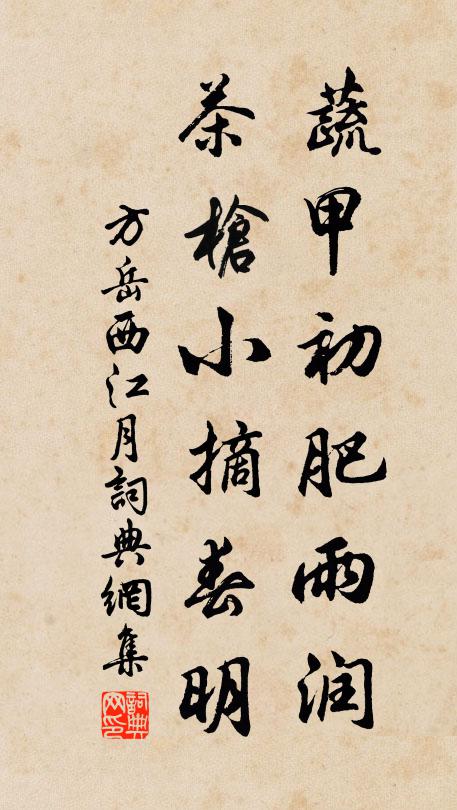 蔬甲初肥雨润
茶槍小摘春明
方岳西江月詞典網集
詞典网印